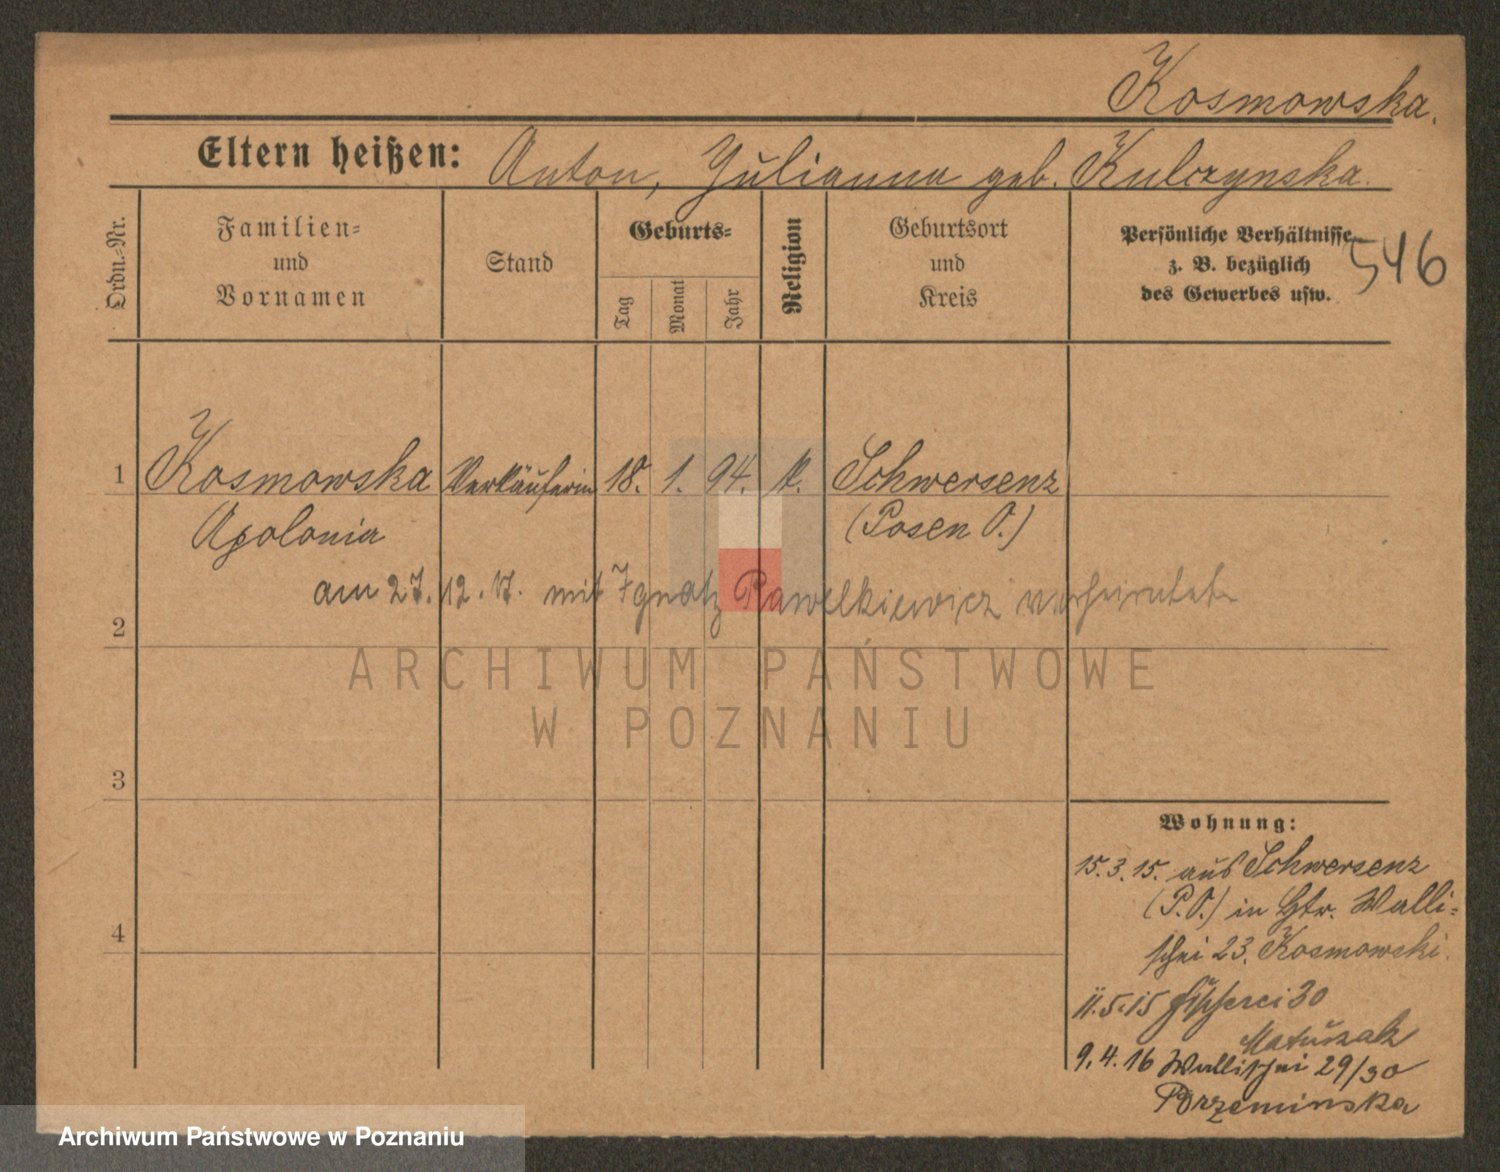 Kosmowska.
Eltern heißen: Anton, Julianna geb. Kulczynska.
Ordn.-Nr.
Familien-
und
Vornamen
Stand
Geburts-
Tag
Monat
Jahr
Religion
Geburtsort
und
Kreis
Persönliche Verhältnisse
z. B. bezüglich
des Gewerbes usw.
546
1 Kosmowska Verkäuferin 18. 1. 94. k. Schwersenz
Apolonia (Posen O.)
am 27.12.17. mit Ignatz Pawelkiewicz verheiratet
2
3
4
Wohnung:
15.3.15. aus Schwersenz
(P.O.) in Htr. Walli-
schei 23. Kosmowski.
11.5.15 Fischerei 30
Matuszak
9.4.16 Wallischei 29/30
Przeminska
ARCHIWUM PAŃSTWOWE
W POZNANIU
Archiwum Państwowe w Poznaniu